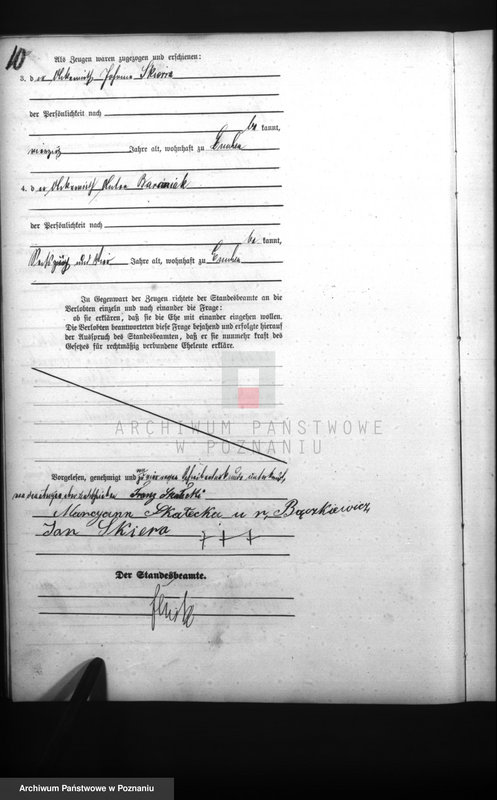 10
Als Zeugen waren zugezogen und erschienen:
3. der Ackerwirth Johann Skiera
der Persönlichkeit nach
bekannt,
vierzig Jahre alt, wohnhaft zu
4. der Ackerwirth Anton Barciniek
der Persönlichkeit nach
bekannt,
und vier Jahre alt, wohnhaft zu
In Gegenwart der Zeugen richtete der Standesbeamte an die
Verlobten einzeln und nach einander die Frage:
ob sie erklären, daß sie die Ehe mit einander eingehen wollen.
Die Verlobten beantworteten diese Frage bejahend und erfolgte hierauf
der Ausspruch des Standesbeamten, daß er sie nunmehr kraft des
Gesetzes für rechtmäßig verbundene Eheleute erkläre.
ARCHIWUM PAŃSTWOWE
W POZNANIU
Vorgelesen, genehmigt und
Franz Skałecki
Maryann Skałecka u r, Bączkiewicz
Jan Skiera +++
Der Standesbeamte.
Archiwum Państwowe w Poznaniu